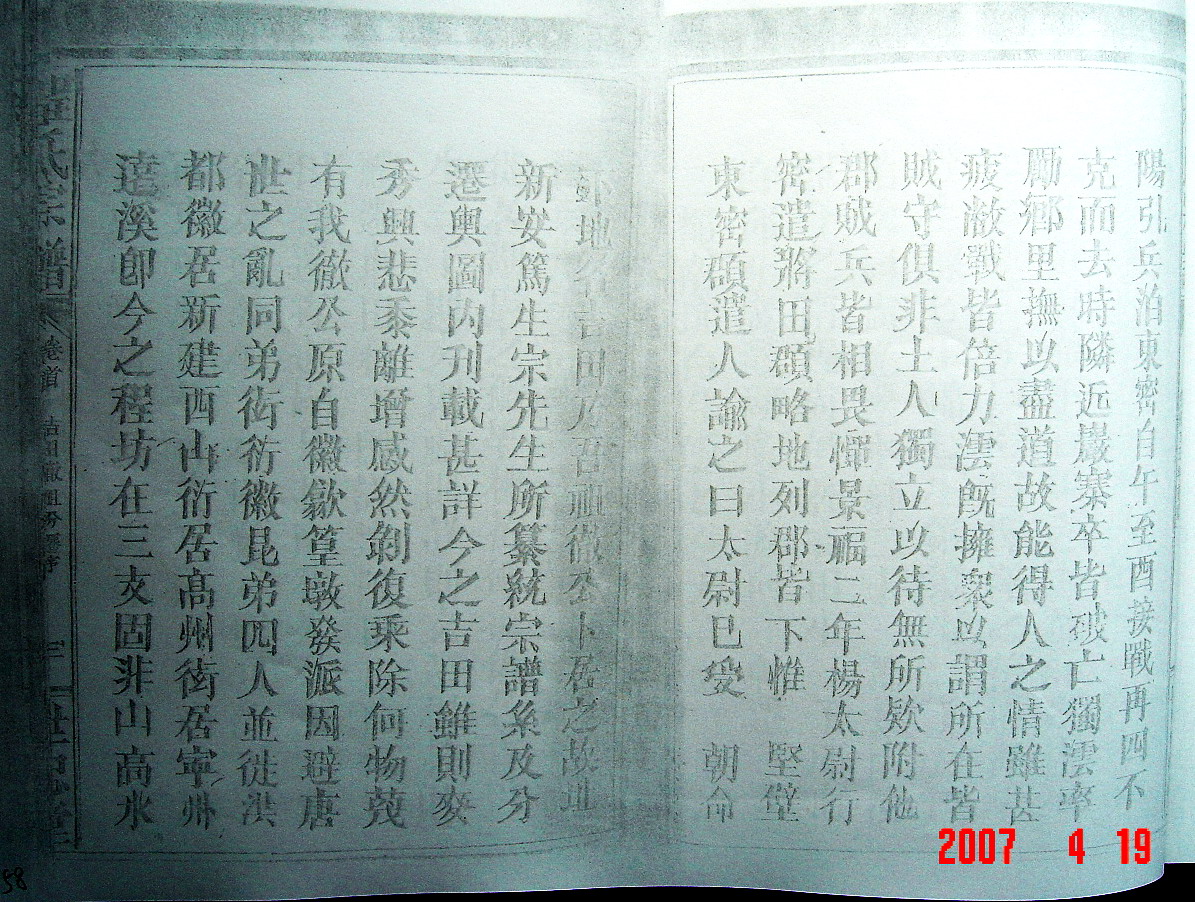 陽引兵泊東密自午至酉接戰再四不
克而去時隣近巖寨卒皆破亡獨澐率
勵鄉里撫以盡道故能得人之情雖甚
疲敝戰皆倍力澐旣擁衆以謂所在皆
賊守俱非土人獨立以待無所欵附他
郡賊兵皆相畏憚景福二年楊太尉行
密遣將田頵略地列郡皆下惟 堅壁
東密頵遣人諭之曰太尉已受 朝命
地名吉田乃吾祖徹公卜居之故址
新安篤生宗先生所纂統宗譜系及分
遷輿圖内刋載甚詳今之吉田雖則麥
秀興悲黍離增感然剝復乘除何物蔑
有我徹公原自徽歙篁墩發派因避唐
世之亂同弟衒衍徽昆弟四人並徙洪
都徽居新建西山衍居高州衒居寧州
逹溪卽今之程坊在三攴固非山高水
程氏宗譜 卷首 吉田徹祖 三
2007 4 19
58